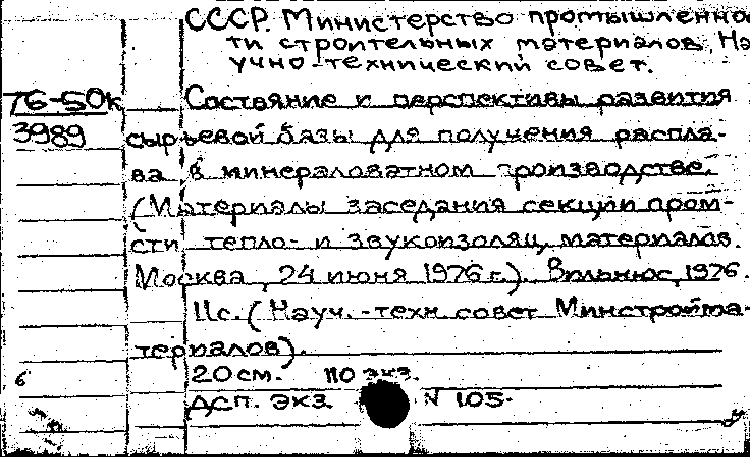 СССР. Министерство промышленнос-
ти строительных материалов. На-
учно-технический совет.
76-50к Состояние и перспективы развития
3989 сырьевой базы для получения распла-
ва в минераловатном производстве.
(Материалы заседания секции пром-
сти тепло- и звукоизоляц. материалов.
Москва, 24 июня 1976 г.). Вильнюс, 1976.
11с. (Науч.-техн. совет Минстройма-
териалов).
6 20 см. 110 экз.
ДСП. Экз. N 105-